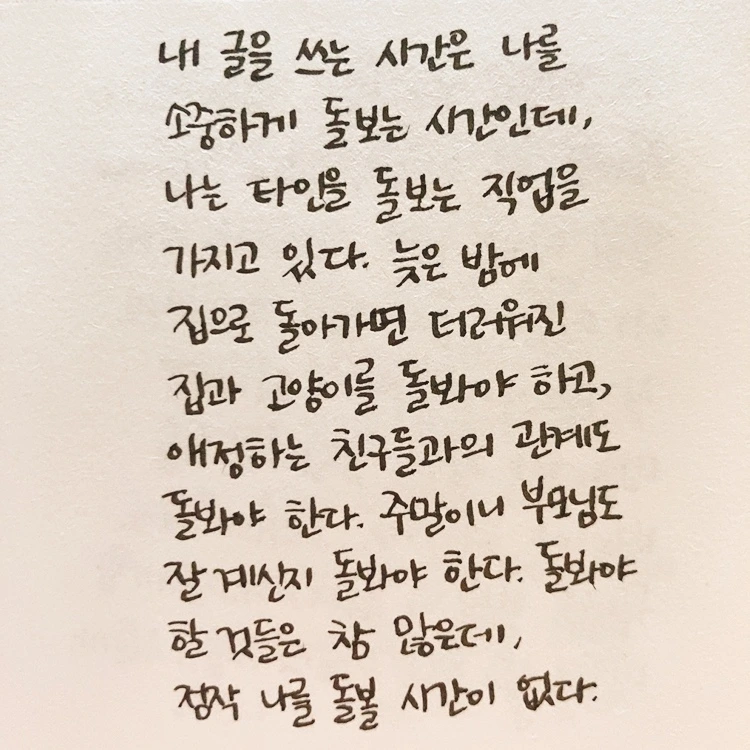 내 글을 쓰는 시간은 나를
소중하게 돌보는 시간인데,
나는 타인을 돌보는 직업을
가지고 있다. 늦은 밤에
집으로 돌아가면 더러워진
집과 고양이를 돌봐야 하고,
애정하는 친구들과의 관계도
돌봐야 한다. 주말이니 부모님도
잘 계신지 돌봐야 한다. 돌봐야
할 것들은 참 많은데,
정작 나를 돌볼 시간이 없다.